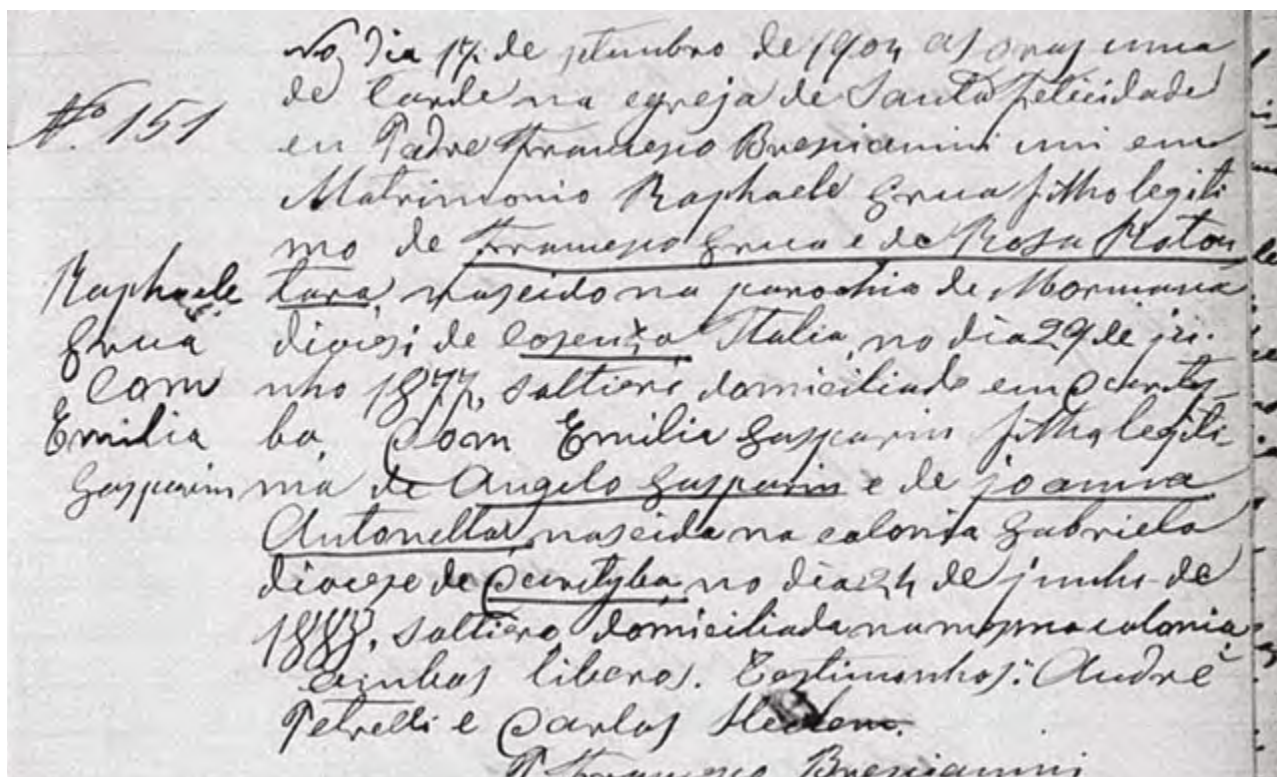 No dia 17 de setembro de 1904 as oras uma
de tarde na egreja de Santa Felicidade
Nº 151
eu Padre Francesco Bresciannini uni em
Matrimonio Raphaele Grua filho legiti
mo de Francesco Grua e de Rosa Roton
Raphaele
tara, nascido na parochia de Mormana
Grua
diocesi de Cosenza Italia, no dia 29 de ju-
Com
nho 1877, soltiero domiciliado em Curity-
Emilia
ba, Com Emilia Gasparin filha legiti
Gasparin
ma de Angelo Gasparin e de joanna
Antonella, nascida na colonia Gabriela
diocese de Curityba, no dia 24 de junho de
1883, soltiera domiciliada na mesma colonia
ambos liberos. Testimonhos: André
Petrelli e Carlos
P. Francesco Bresciannini